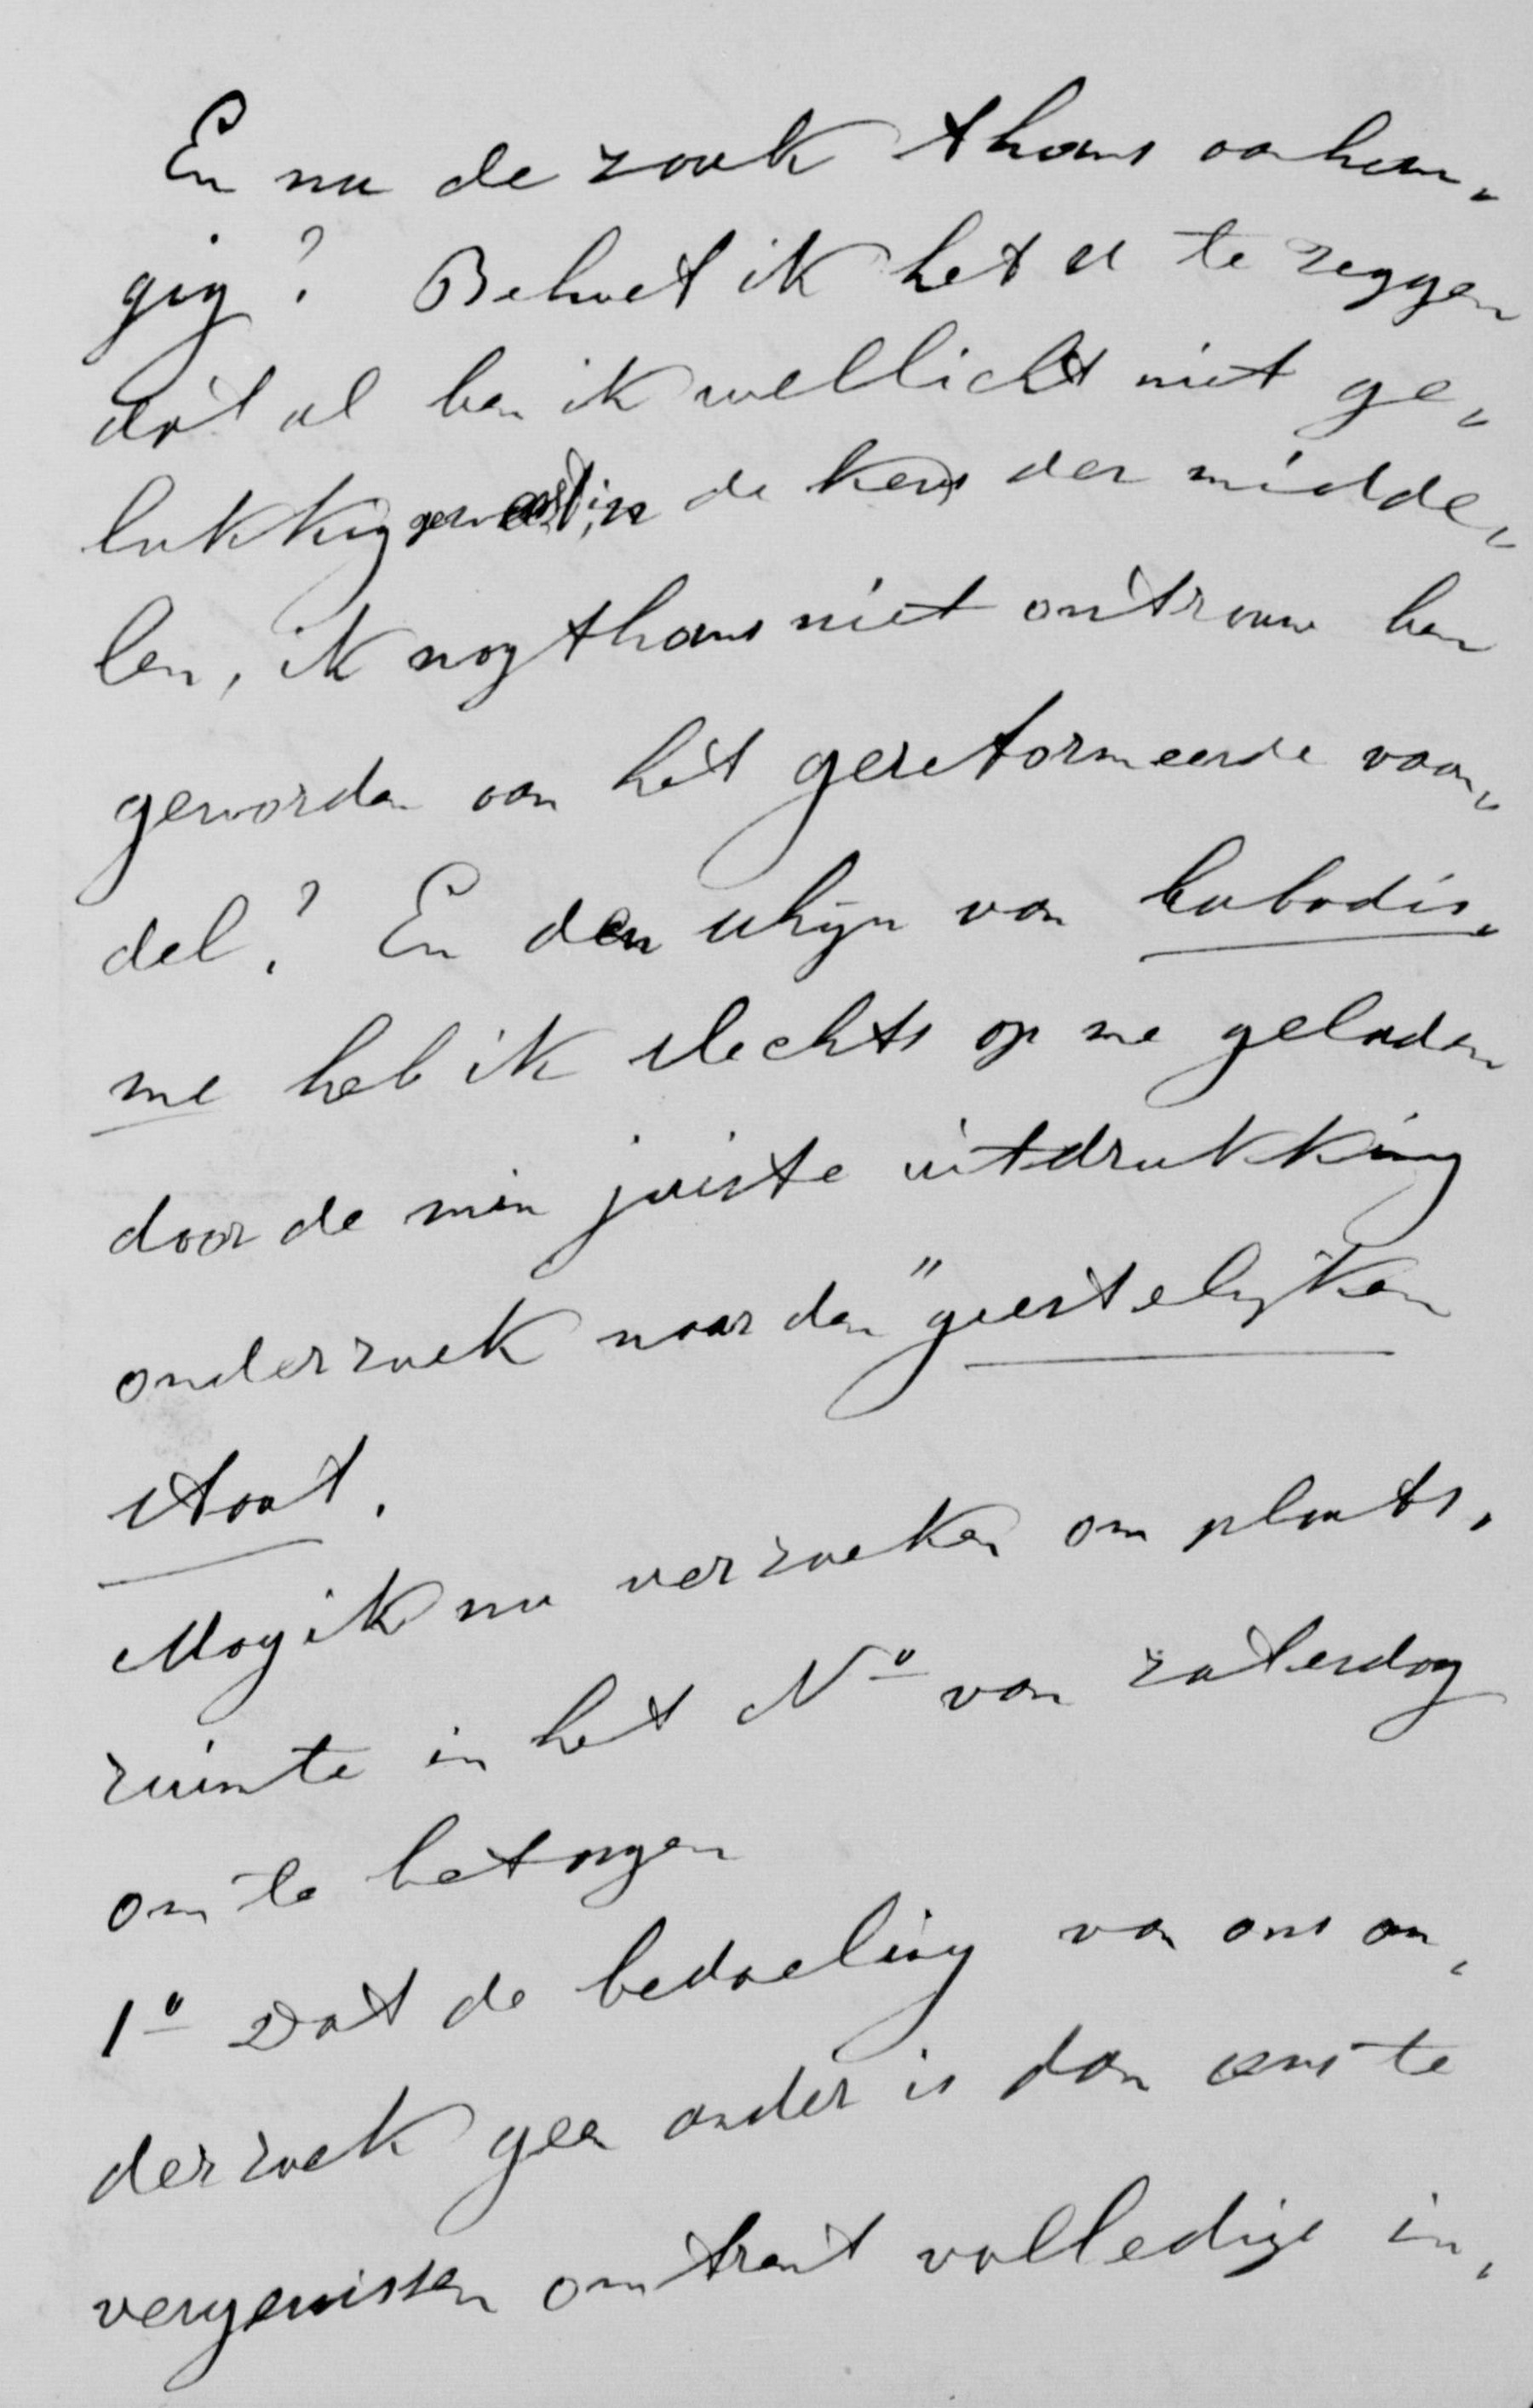 En nu de zaak thans aanhan„
gig? Behoef ik het U te zeggen
dat al ben ik wellicht niet ge„
lukkig geweest in de keus der midde„
len, ik nogthans niet ontrouw ben
geworden aan het gereformeerde vaan„
del? En den schijn van labadis„
me heb ik slechts op me geladen
door de min juiste uitdrukking
onderzoek naar den "geestelijken
staat.
Mag ik nu verzoeken om plaats„
ruimte in het No van zaterdag
om te betoogen
1o Dat de bedoeling van ons on„
derzoek geen ander is dan ons te
vergewissen omtrent volledige in„